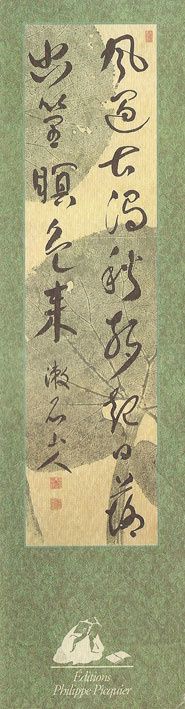 風過古澗秋聲起日落
幽篁暝色来
漱石山人
Éditions
Philippe Picquier